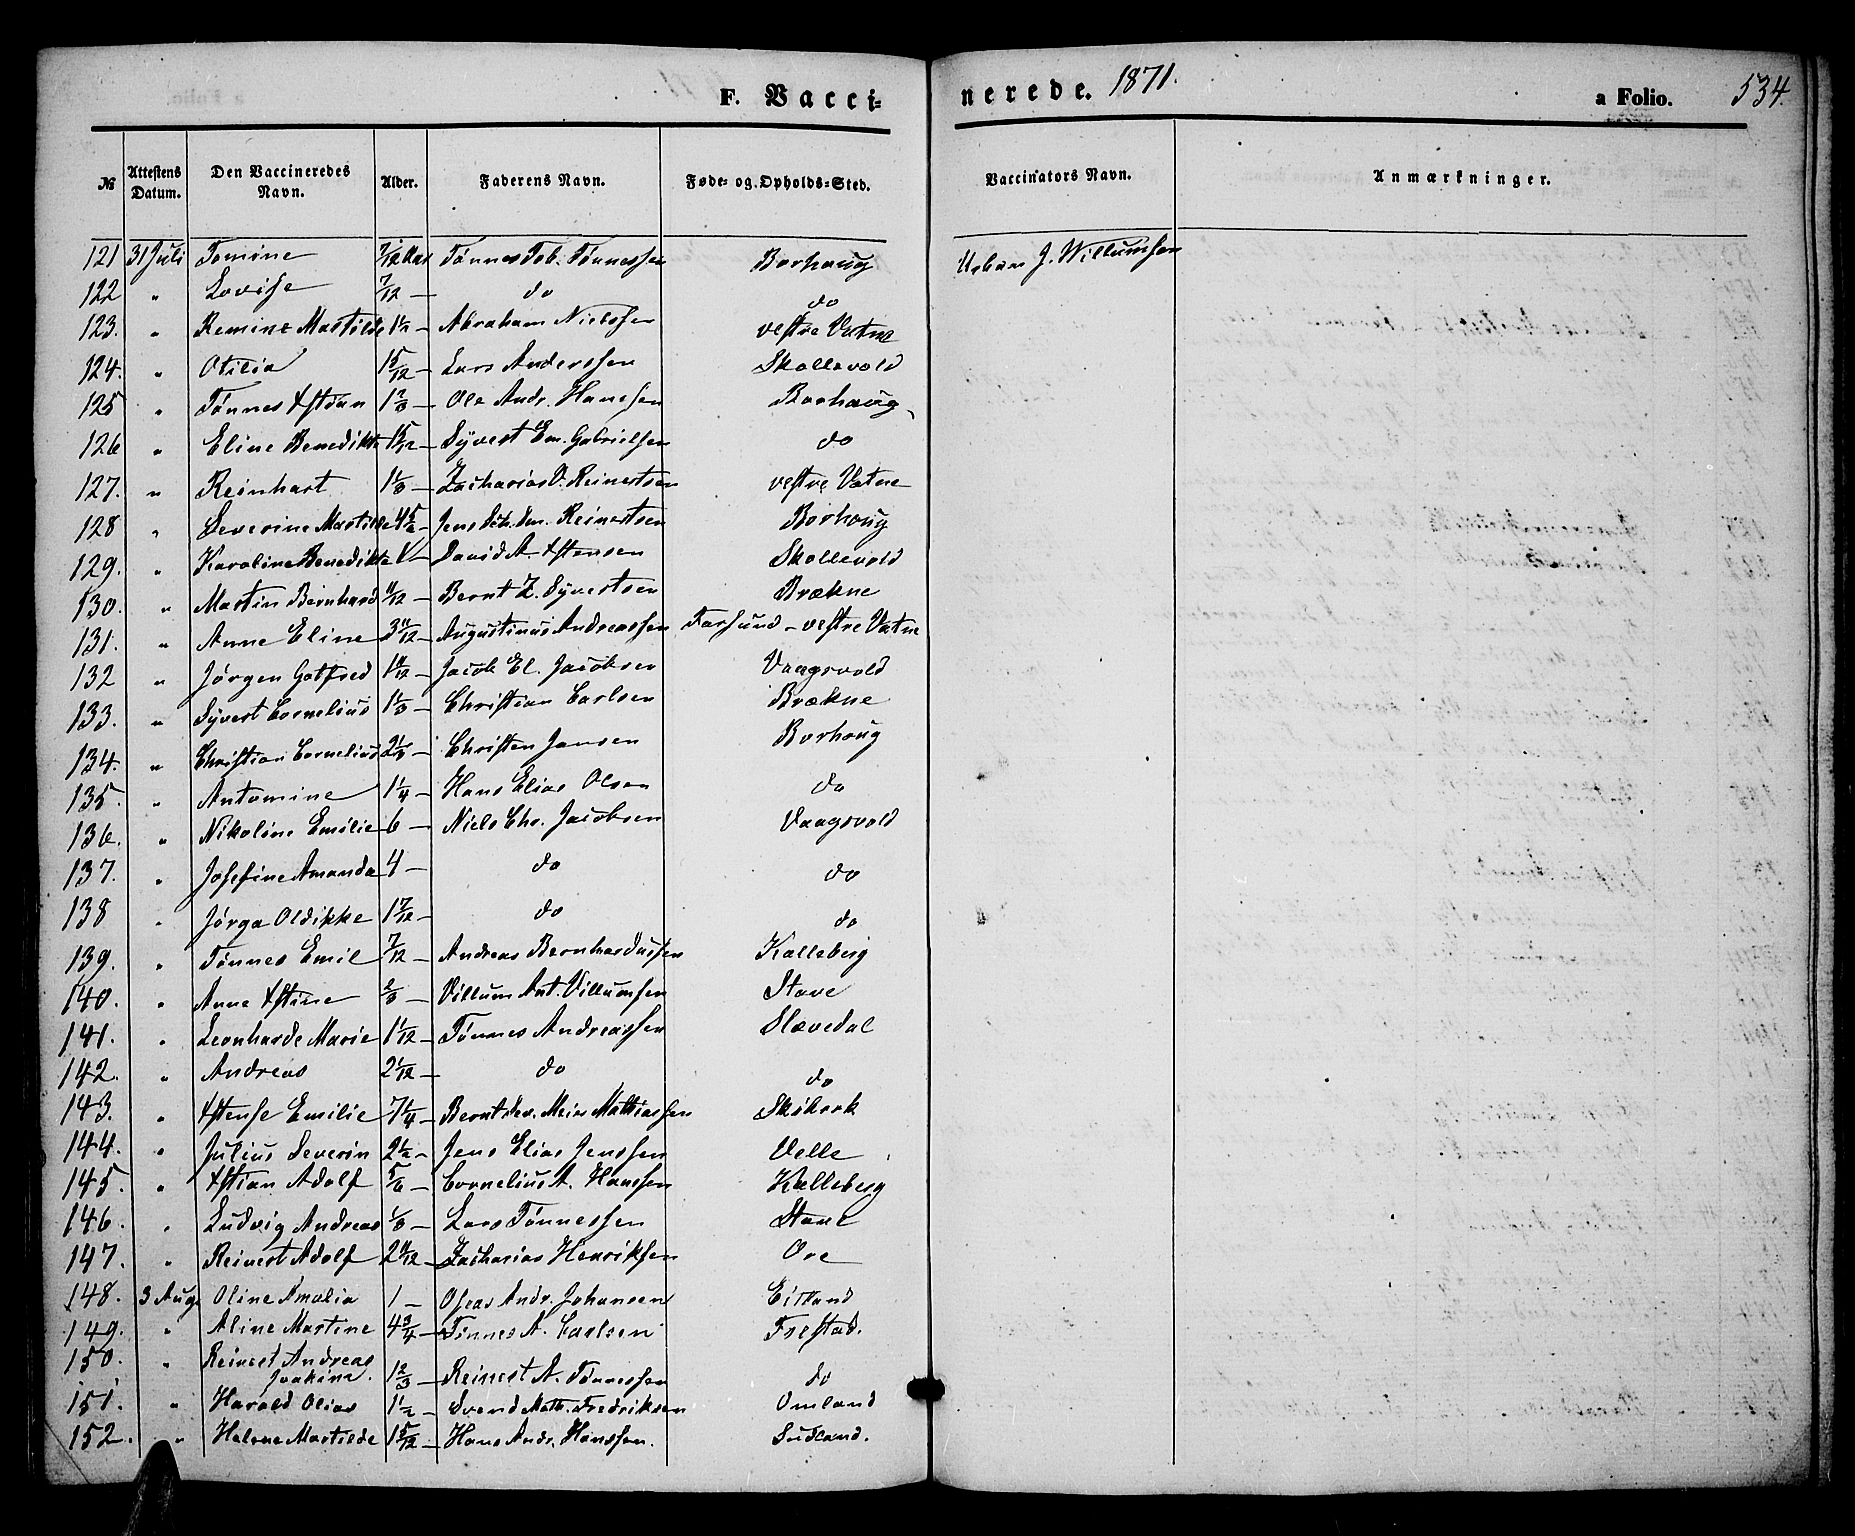 F. Vacci-
nerede. 1871.
a Folio. 534.
№ Attestens Datum. Den Vaccineredes Navn. Alder. Faderens Navn. Føde- og Opholds-Sted. Vaccinators Navn. Anmærkninger.
121 31 Juli Tomine 7/12 Aar Tønnes Tob. Tønnessen Borhaug J. Willumsen
122 " Lovise 7/12 — do do
123. " Remine Martilde 1½ — Abraham Nielssen vestre Vatne
124. " Otilia 1 5/12 — Lars Anderssen Skollevold
125 " Tønnes Xstian 1 2/3 — Ole Andr. Hanssen Borhaug
126 " Eline Benedikte 1 5/12 — Syvert Em. Gabrielsen do
127. " Reinhart 1 1/3 — Zacharias O. Reinertsen vestre Vatne
128 " Severine Martilde 4 5/6 — Jens Sev. Reinertsen Borhoug
129. " Karoline Benedikte 1 — David A. Xstensen Skollevold
130. " Martin Bernhard 11/12 — Bernt Z. Syvertsen Brækne
131. " Anne Eline 3 11/12 — Augustinus Andreassen Farsund - vestre Vatne
132 " Jørgen Gotfred 1 11/12 — Jacob El. Jacobsen Vaagsvold
133. " Syvert Cornelius 1 1/3 — Christian Carlsen Brækne
134. " Christian Cornelius 2 1/3 — Christen Jansen Borhoug
135. " Antomine 1 1/4 — Hans Elias Olsen do
136. " Nikoline Emilie 6 — Niels Chr. Jacobsen Vaagsvold
137. " Josefine Amanda 4 — do do
138 " Jørga Oldikke 1 7/12 — do do
139. " Tønnes Emil 7/12 — Andreas Bernhardussen Kalleberg
140. " Anne Xstine 2/3 — Villum Ant. Villumsen Stave
141. " Leonharde Marie 1 1/12 — Tønnes Andreassen Slevedal
142. " Andreas 2 1/12 — do do
143. " Xtense Emilie 7 1/4 — Bernt Sev. Mein Mathiassen Skibork
144. " Julius Severin 2 1/2 — Jens Elias Jenssen Velle
145. " Xstian Adolf 5/6 — Cornelius A. Hanssen Kalleberg
146. " Ludvig Andreas 1/3 — Lars Tønnessen Stave
147. " Reinert Adolf 2 11/12 — Zacharias Henriksen Ore
148. 3 Aug Oline Amalia 1 — Oseas Andr. Johansen Eitland
149. " Aline Martine 4 3/4 — Tønnes A. Carlsen Frestad.
150. " Reinert Andreas
Joakim. 1 2/3 — Reinert A. Tønnessen do
151. " Harald Olias 1 1/2 — Svend Math. Fredriksen Omland
152. " Helene Martilde 1 5/12 — Hans Andr. Hanssen. Sudland.